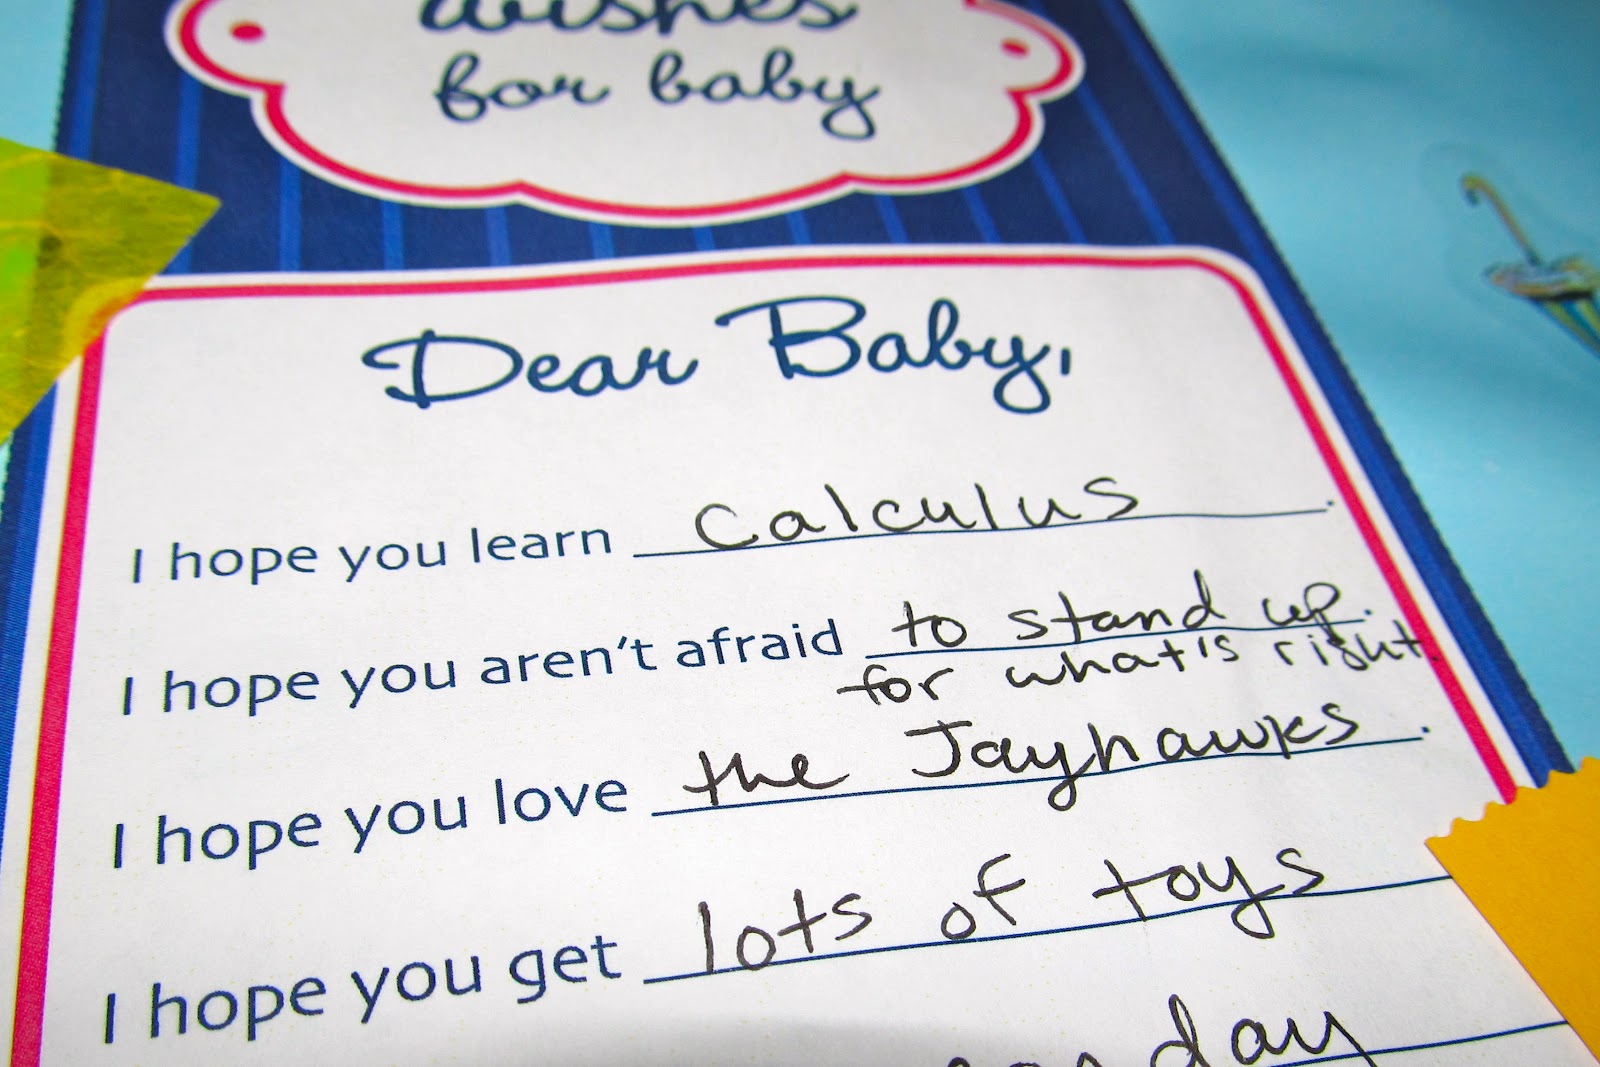 wishes
for baby
Dear Baby,
I hope you learn Calculus.
I hope you aren't afraid to stand up.
for what's right.
I hope you love the Jayhawks.
I hope you get lots of toys
day